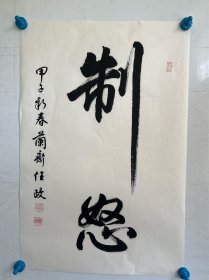 制怒
甲子新春蘭齋任政